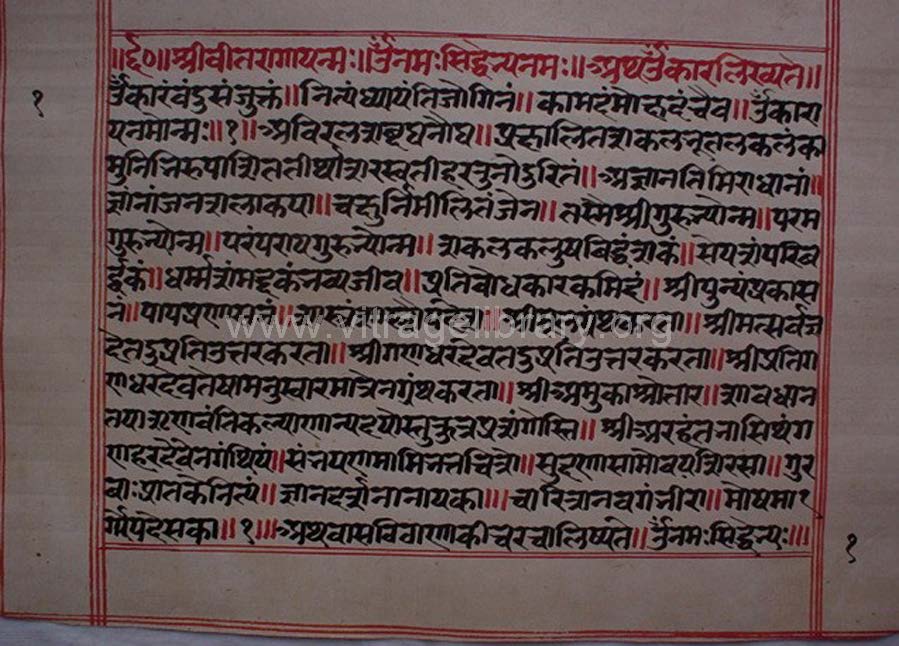 ॥६०॥श्रीवीतरागायन्मः॥ॐनमःसिद्धेभ्यनमः॥अथॐकारलिख्यते॥
ॐकारंवंदुसंजुक्तं॥नित्यंध्यायंतिजोगिनं॥कामदंमोक्षदंचैव॥ॐकारा
यनमोन्मः॥१॥अविरलशब्दघनौघ॥प्रक्षालितशकलभूतलकलंका
मुनिभिरुपाशिततीर्थाशरस्वतीहरतुनोदुरितं॥अज्ञानतिमिरांधानां॥
ज्ञांनांजनशलाकया॥चक्षुर्निमीलितंजेन॥तस्मैश्रीगुरुभ्योन्म॥परम
गुरुभ्योन्म॥परंपरायगुरुभ्योन्म॥शकलकलुषबिद्धंशकं॥सेयशांपरिब
र्द्धकं॥धर्म्मशंमद्दकंभव्यजीव॥प्रतिबोधकारकमिदं॥श्रीपुन्यंप्रकास
नं॥पापप्रणाशनं॥ ॥श्रीमत्सर्वज्ञ
देतदुप्रतिउत्तरकरता॥श्रीगणधरदेवतदुप्रतिउत्तरकरता॥श्रीप्रतिग
णधरदेवतेषामनुस्वारमात्रेनग्रंथकरता॥श्रीअमुकाओतार॥शावधान
तयाश्रणवंतिकल्याण ॥श्रीअरहंतभासियंग
णहरदेवेनगंथियं॥संनपणमामिभत्तचित्तो॥सुदणाणमोवयशिरसा॥गुर
वाःप्रातकनित्यं॥ज्ञानदर्शनानायका॥चारित्रानवगंभीरा॥मोषमा१
र्गोपदेसका॥१॥अथवासविवाणकीचरचालिष्यते॥ॐनमःसिद्धेभ्यः॥
१
१
www.vitragelibrary.org